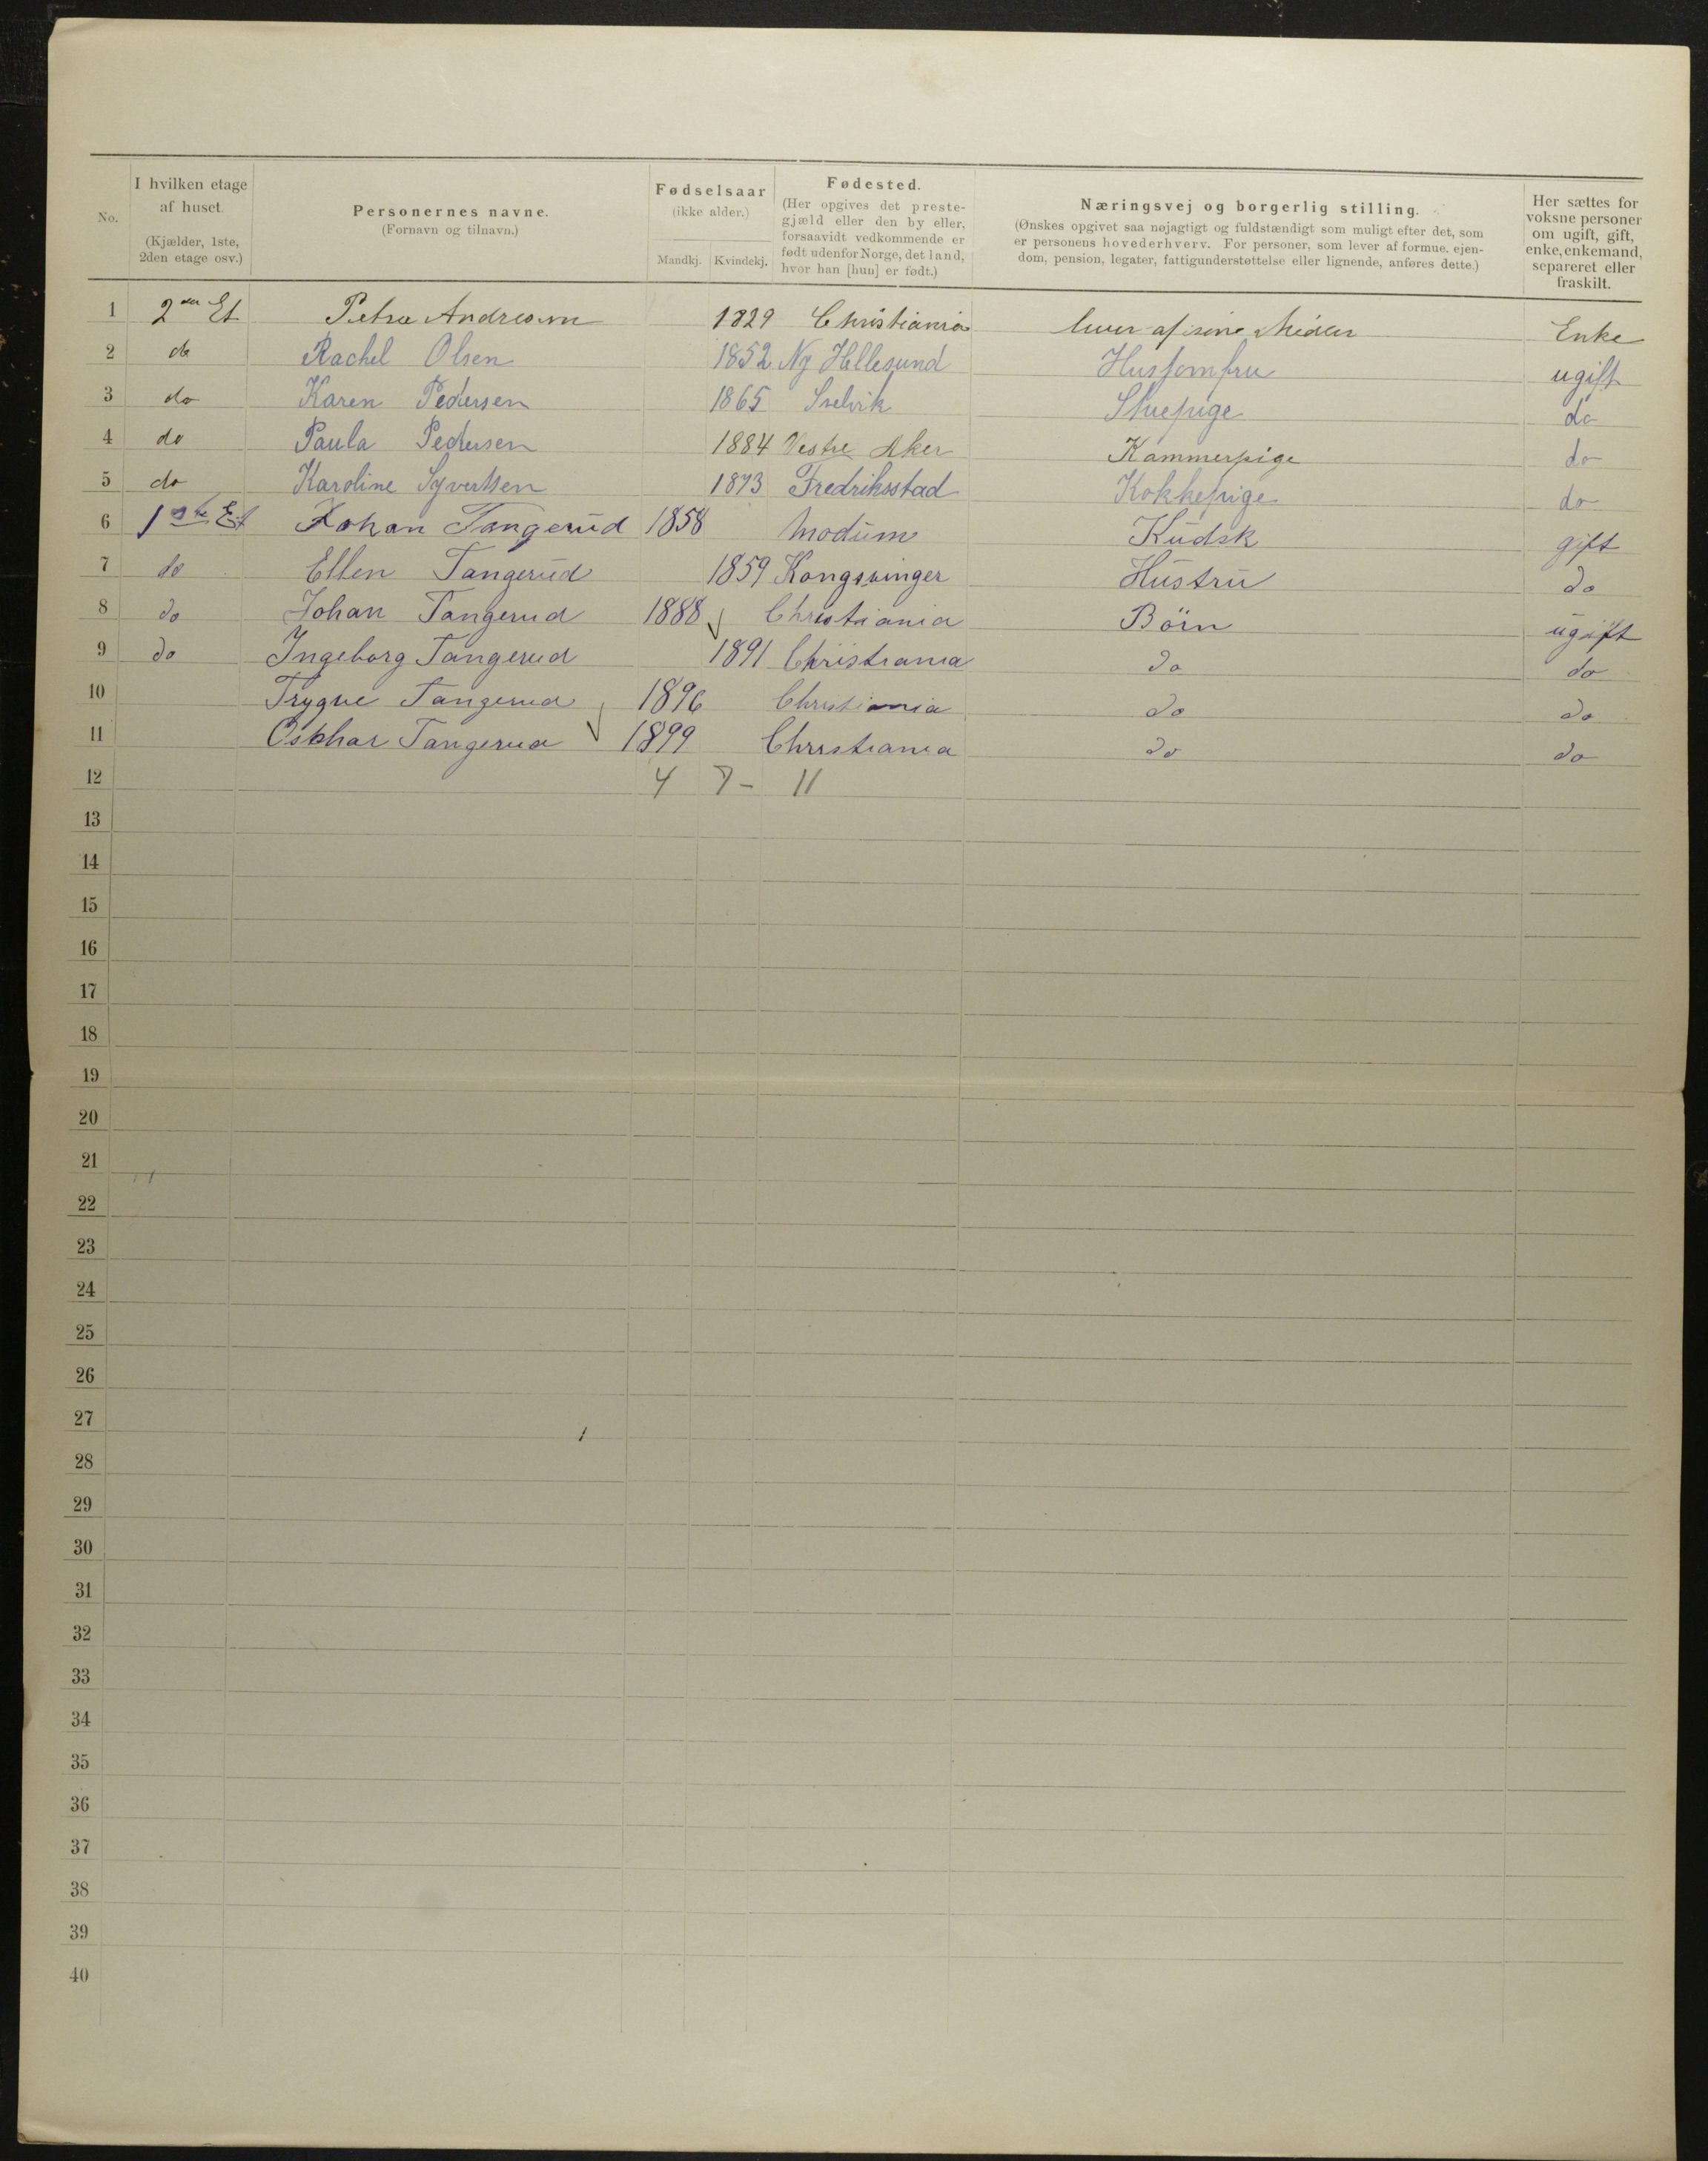 No.
I hvilken etage af huset. (Kjælder, 1ste, 2den etage osv.)
Personernes navne. (Fornavn og tilnavn.)
Fødselsaar (ikke alder.) Mandkj. Kvindekj.
Fødested. (Her opgives det prestegjæld eller den by eller, forsaavidt vedkommende er født udenfor Norge, det land, hvor han [hun] er født.)
Næringsvej og borgerlig stilling. (Ønskes opgivet saa nøjagtigt og fuldstændigt som muligt efter det, som er personens hovederhverv. For personer, som lever af formue, ejendom, pension, legater, fattigunderstøttelse eller lignende, anføres dette.)
Her sættes for voksne personer om ugift, gift, enke, enkemand, separeret eller fraskilt.
1 2den Et Petra Andresen 1829 Christiania lever af sine Midler Enke
2 do Rachel Olsen 1852 Ny Hellesund Husjomfru ugift
3 do Karen Pedersen 1865 Svelvik Stuepige do
4 do Paula Pedersen 1884 Vestre Aker Kammerpige do
5 do Karoline Syvertsen 1873 Fredriksstad Kokkepige do
6 1ste Et Johan Tangerud 1858 Modum Kudsk gift
7 do Ellen Tangerud 1859 Kongsvinger Hustru do
8 do Johan Tangerud 1888 Christiania Börn ugift
9 do Ingeborg Tangerud 1891 Christiania do do
10 Trygve Tangerud 1896 Christiania do do
11 Oskhar Tangerud 1899 Christiania do do
12 4 7 - 11
13
14
15
16
17
18
19
20
21
22
23
24
25
26
27
28
29
30
31
32
33
34
35
36
37
38
39
40